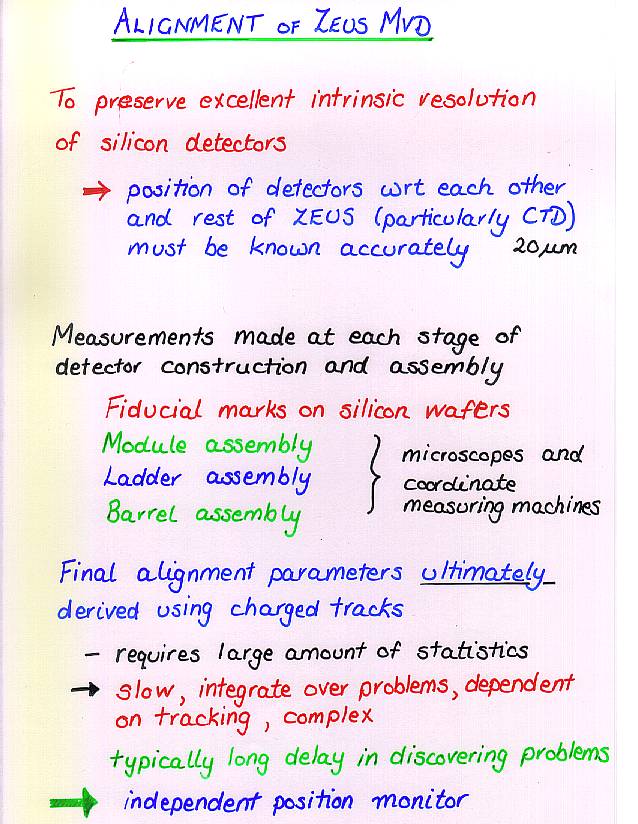 ALIGNMENT OF ZEUS MVD
To preserve excellent intrinsic resolution
of silicon detectors
→ position of detectors wrt each other
and rest of ZEUS (particularly CTD)
must be known accurately 20μm
Measurements made at each stage of
detector construction and assembly
Fiducial marks on silicon wafers
Module assembly
Ladder assembly
Barrel assembly
} microscopes and
coordinate
measuring machines
Final alignment parameters ultimately
derived using charged tracks
- requires large amount of statistics
→ slow, integrate over problems, dependent
on tracking, complex
typically long delay in discovering problems
→ independent position monitor